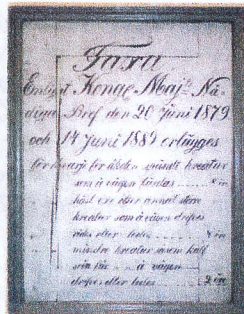 Taxa
Enligt Kongl Maj:ts Nå-
diga Bref den 20 Juni 1879
och 14 Juni 1889 erlägges
för hvarje för åkdon spändt kreatur
som å vägen
häst oxe eller annat större
kreatur som å vägen drifves
rides eller ledes 4 öre
mindre kreatur såsom kalf
å vägen
drifves eller ledes 2 öre